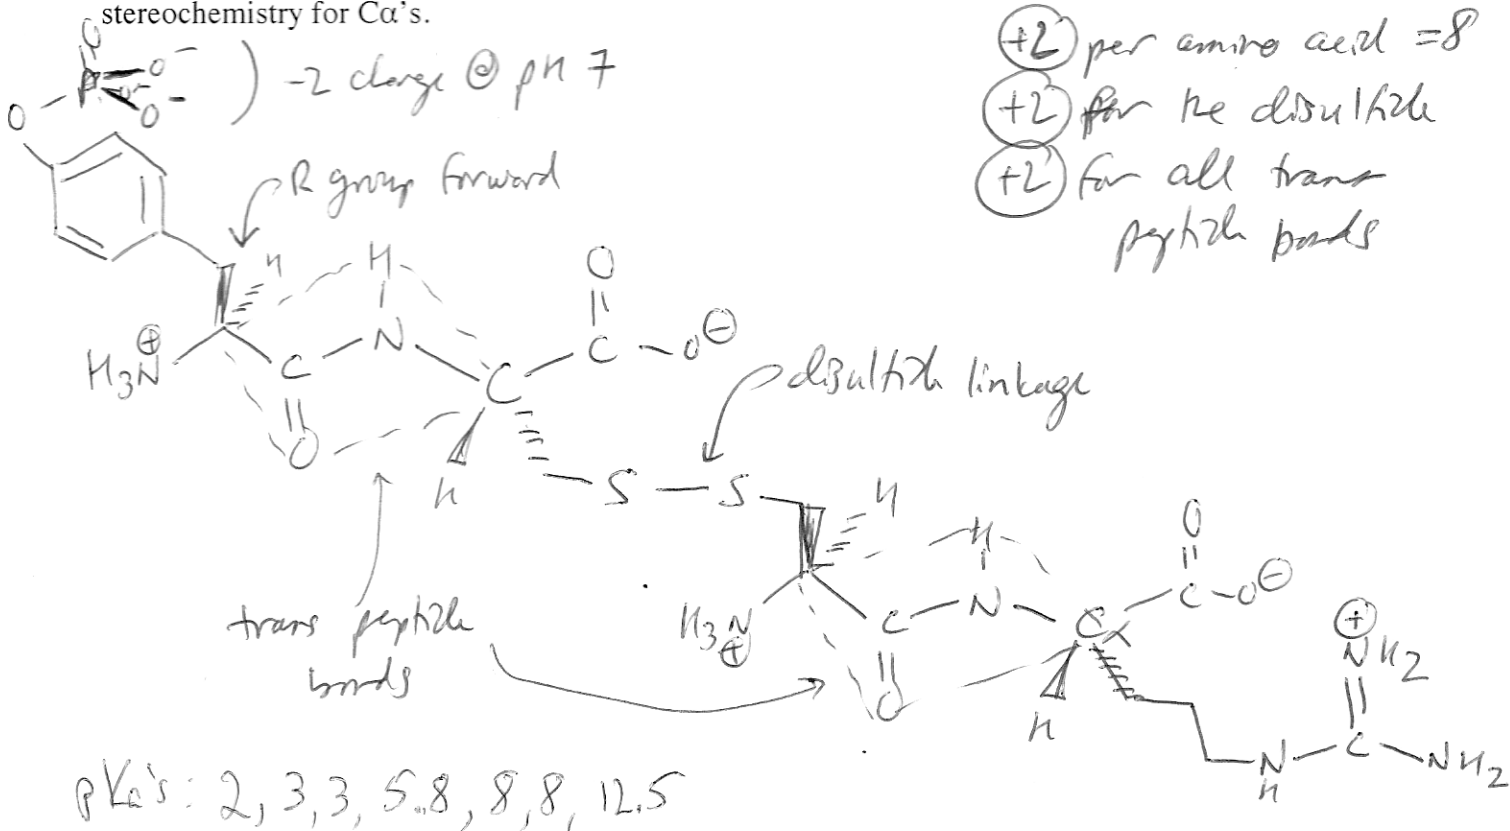 stereochemistry for Cα's.
-2 charge @ pH 7
+2 per amino acid = 8
+2 for the disulfide
+2 for all trans
peptide bonds
R group forward
O
P
O -
O
O -
H
H
O
H3N ⊕
C
N
C
C
O ⊖
O
H
disulfide linkage
S — S
H
H
O
trans peptide
bonds
H3N
⊕
C
N
Cα
C
O ⊖
O
H
⊕
NH2
N
H
C
NH2
pKa's: 2, 3, 3, 5.8, 8, 8, 12.5